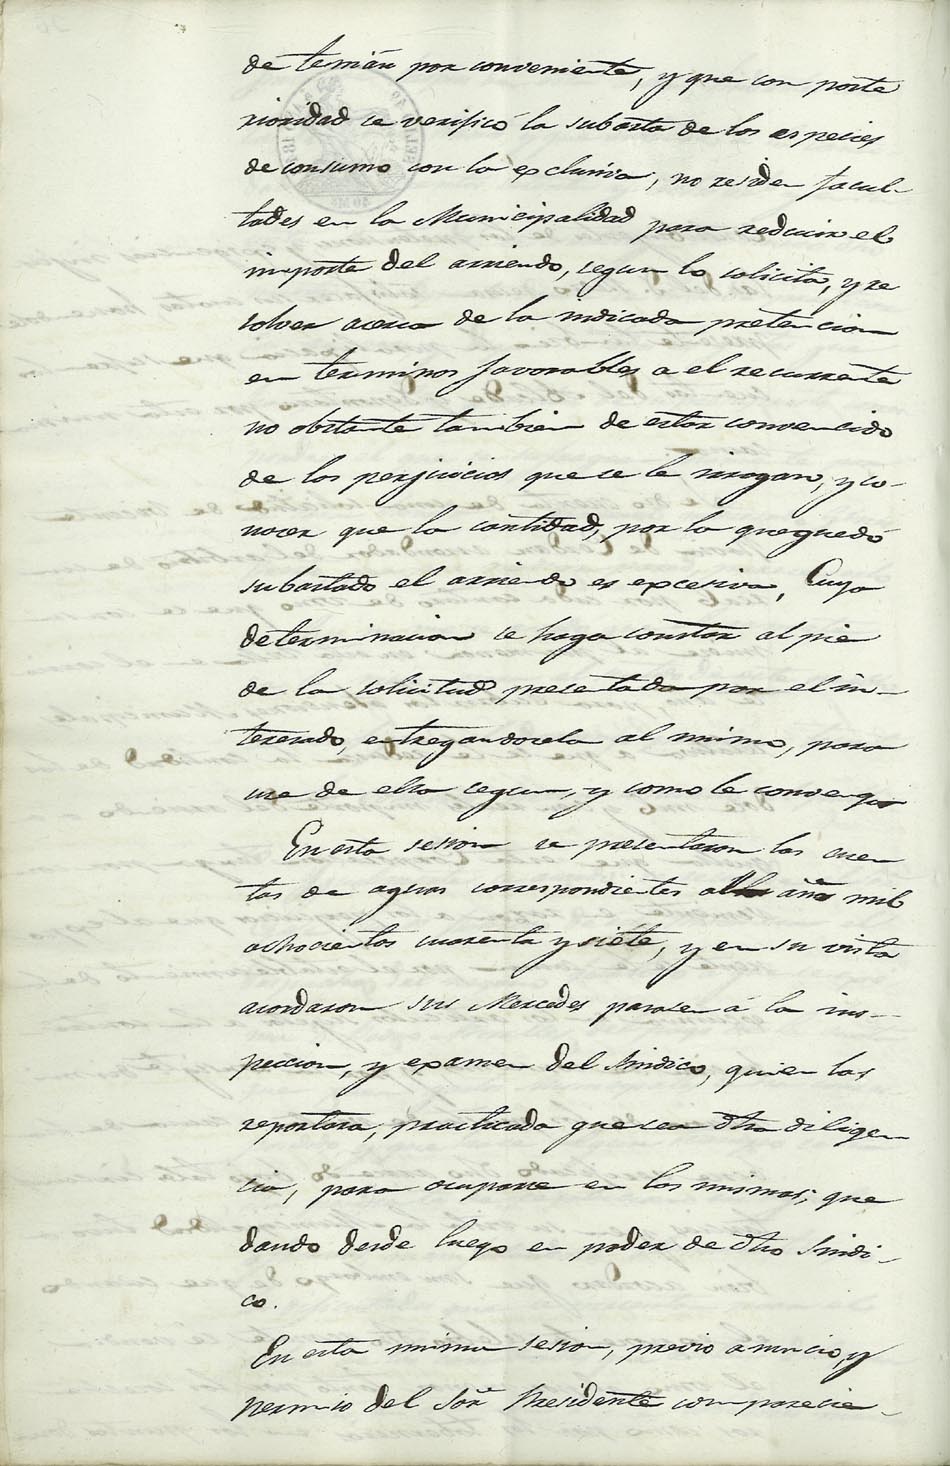 de temian por conveniente, y que con poste
rioridad se verificó la subasta de los especies
de consumo con la exclusiva, no residen facul-
tades en la Municipalidad para reducir el
importe del arriendo, segun lo solicita, y re
solver acerca de la indicada pretencion
en terminos favorables a el recurrente
no obstante tambien de estar convencido
de los perjuicios que se le irrogan, y co-
nocer que la cantidad, por la que quedó
subastado el arriendo es excesiva, Cuya
determinacion se haga constar al pie
de la solicitud presentada por el in-
teresado, entregandosela al mismo, para
use de ella segun, y como le convenga
En esta sesion se presentaron las cuen
tas de aguas correspondientes al año mil
ochocientos cuarenta y siete, y en su vista
acordaron sus Mercedes pasasen á la ins-
peccion, y examen del Sindico, quien las
reportara, practicada que sea dha diligen
cia, para ocuparse en las mismas; que
dando desde luego en poder de dho Sindi-
co.
En esta misma sesion, previo anuncio, y
permiso del Sor Presidente comparecie-